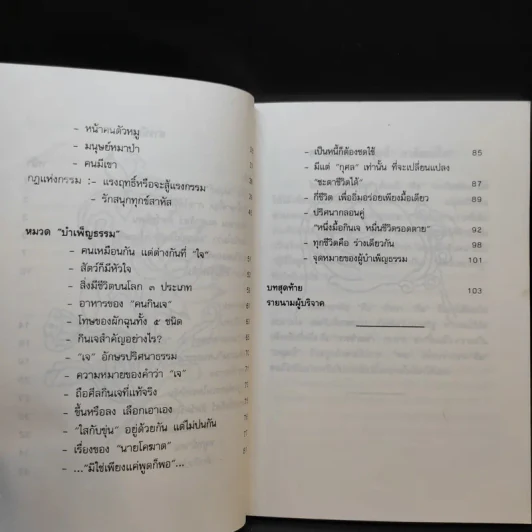 - หน้าคนตัวหมู
- มนุษย์หมาป่า
- คนมีเขา
กฎแห่งกรรม :- แรงฤทธิ์หรือจะสู้แรงกรรม
- รักสนุกทุกข์สาหัส
หมวด "บำเพ็ญธรรม"
- คนเหมือนกัน แต่ต่างกันที่ "ใจ"
- สัตว์ก็มีหัวใจ
- สิ่งมีชีวิตบนโลก ๓ ประเภท
- อาหารของ "คนกินเจ"
- โทษของผักฉุนทั้ง ๕ ชนิด
- กินเจสำคัญอย่างไร?
- "เจ" อักษรปริศนาธรรม
- ความหมายของคำว่า "เจ"
- ถือศีลกินเจที่แท้จริง
- ขึ้นหรือลง เลือกเอาเอง
- "ใสกับขุ่น" อยู่ด้วยกัน แต่ไม่ปนกัน
- เรื่องของ "นายโคฆาต"
- ..."มิใช่เพียงแค่พูดก็พอ"...
- เป็นหนี้ก็ต้องชดใช้ 85
- มีแต่ "กุศล" เท่านั้น ที่จะเปลี่ยนแปลง
"ชะตาชีวิตได้" 87
- กี่ชีวิต เพื่ออิ่มอร่อยเพียงมื้อเดียว 89
- ปริศนากลอนคู่
"หนึ่งมื้อกินเจ หมื่นชีวิตรอดตาย" 92
- ทุกชีวิตคือ ร่างเดียวกัน 98
- จุดหมายของผู้บำเพ็ญธรรม 101
บทสุดท้าย 103
รายนามผู้บริจาค